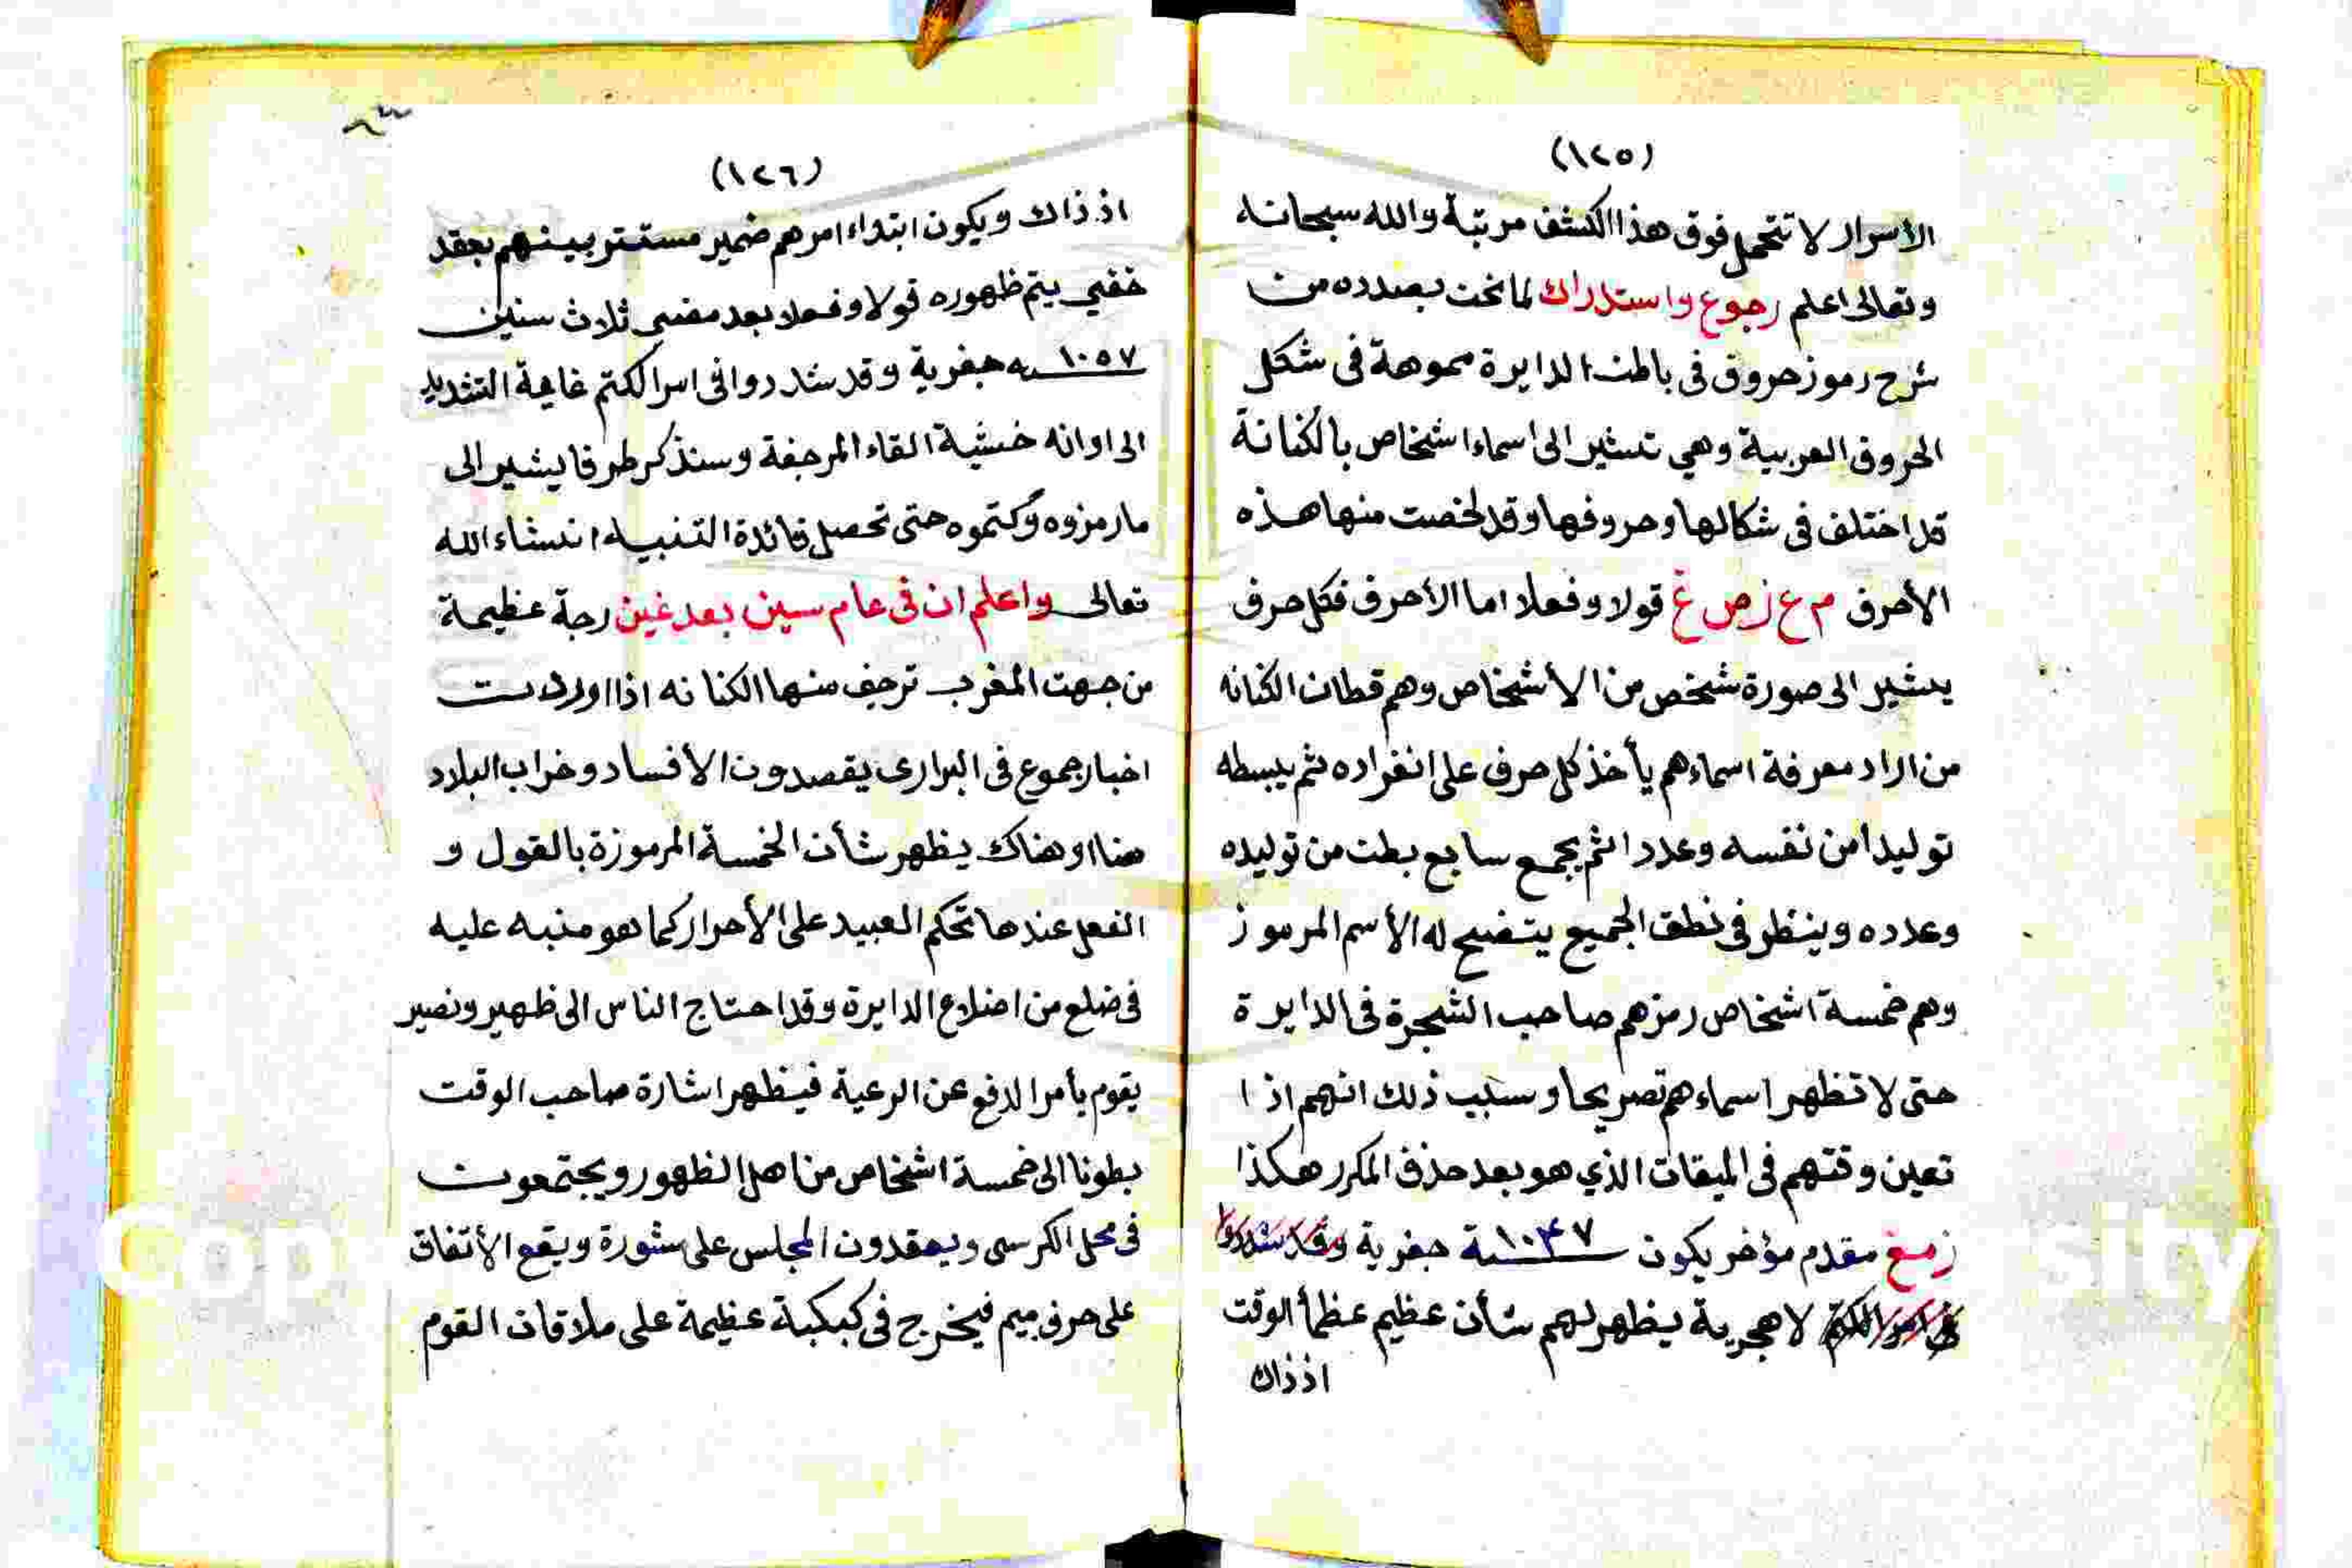 (١٢٥)
الأسرار لا تتحمل فوق هذا الكشف مرتبة والله سبحانه
وتعالى اعلم رجوع واستدراك لما نحن بصدده من
شرح رموز حروف فى باطن الدايرة مموهة فى شكل
الحروف العربية وهي تشير الى اسماء اشخاص بالكنانة
قد اختلف فى شكالها وحروفها وقد لخصت منها هذه
الأحرف م ع ز ص غ قولا وفعلا اما الأحرف فكل حرف
يشير الى صورة شخص من الأشخاص وهم قطان الكنانه
من اراد معرفة اسماءهم يأخذ كل حرف على انفراده ثم يبسطه
توليدا من نفسه وعددا ثم يجمع سابع بطن من توليده
وعدده وينظر فى نطق الجميع يتضح له الأسم المرموز
وهم خمسة اشخاص رمزهم صاحب الشجرة فى الدايرة
حتى لا تظهر اسماءهم تصريحا وسبب ذلك انهم اذا
تعين وقتهم فى الميقات الذي هو بعد حذف المكرر هكذا
زمغ مقدم مؤخر يكون ١٠٤٧ سنة جفرية وقد شددوا
فى امر الكتم لا هجرية يظهر لهم شأن عظيم عظما الوقت
اذ ذاك
(١٢٦)
اذ ذاك ويكون ابتداء امرهم ضمير مستتر بينهم بعقد
خفي يتم ظهوره قولا وفعلا بعد مضى ثلاث سنين
١٠٥٧ ـنه جفرية وقد شددوا فى اسرا لكتم غاية التشديد
الى اوانه خشية القاء المرجفة وسنذكر طرفا يشير الى
ما رمزوه وكتموه حتى تحصل فائدة التنبيه انشاء الله
تعالى واعلم ان فى عام سين بعد غين رجة عظيمة
من جهت المغرب ترجف منها الكنانه اذا وردت
اخبار جموع فى البرارى يقصدون الأفساد وخراب البلاد
هنا وهناك يظهر شأن الخمسة المرموزة بالقول و
الفعل عندها تحكم العبيد على الأحرار كما هو منبه عليه
فى ضلع من اضلاع الدايرة وقد احتاج الناس الى ظهير ونصير
يقوم بأمر الدفع عن الرعية فيظهر اشارة صاحب الوقت
بطونا الى خمسة اشخاص من اهل الظهور ويجتمعون
فى محل الكرسى ويعقدون المجلس على شورة ويقع الأتفاق
على حرف ميم فيخرج فى كبكبة عظيمة على ملاقات القوم